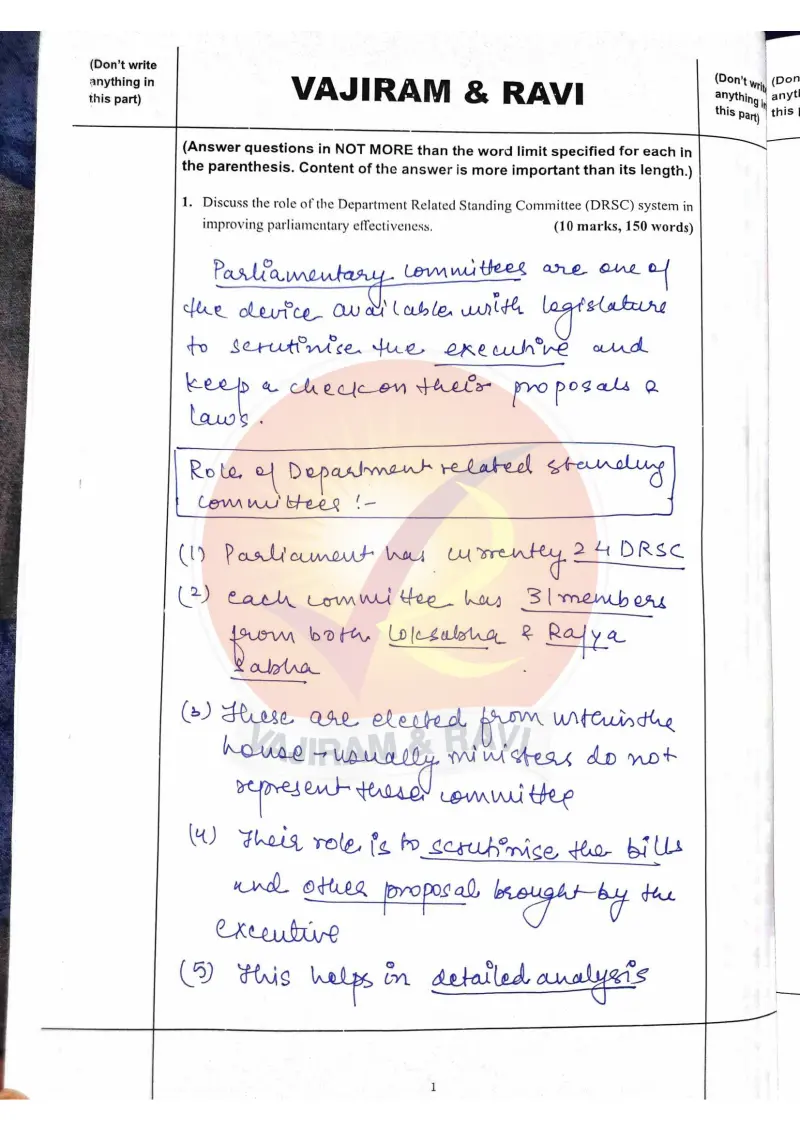 (Don't write
anything in
this part)
VAJIRAM & RAVI
(Don't write
anything in
this part)
(Don
anyt
this
(Answer questions in NOT MORE than the word limit specified for each in
the parenthesis. Content of the answer is more important than its length.)
1. Discuss the role of the Department Related Standing Committee (DRSC) system in
improving parliamentary effectiveness. (10 marks, 150 words)
Parliamentary committees are one of
the device available with legislature
to scrutinise the executive and
keep a check on their proposals &
laws.
Role of Department related standing
committees :-
(1) Parliament has currently 24 DRSC
(2) each committee has 31 members
from both Loksabha & Rajya
Sabha
(3) These are elected from within the
house - usually ministers do not
represent these committee
VAJIRAM & RAVI
(4) Their role is to scrutinise the bills
and other proposal brought by the
executive
(5) This helps in detailed analysis
1